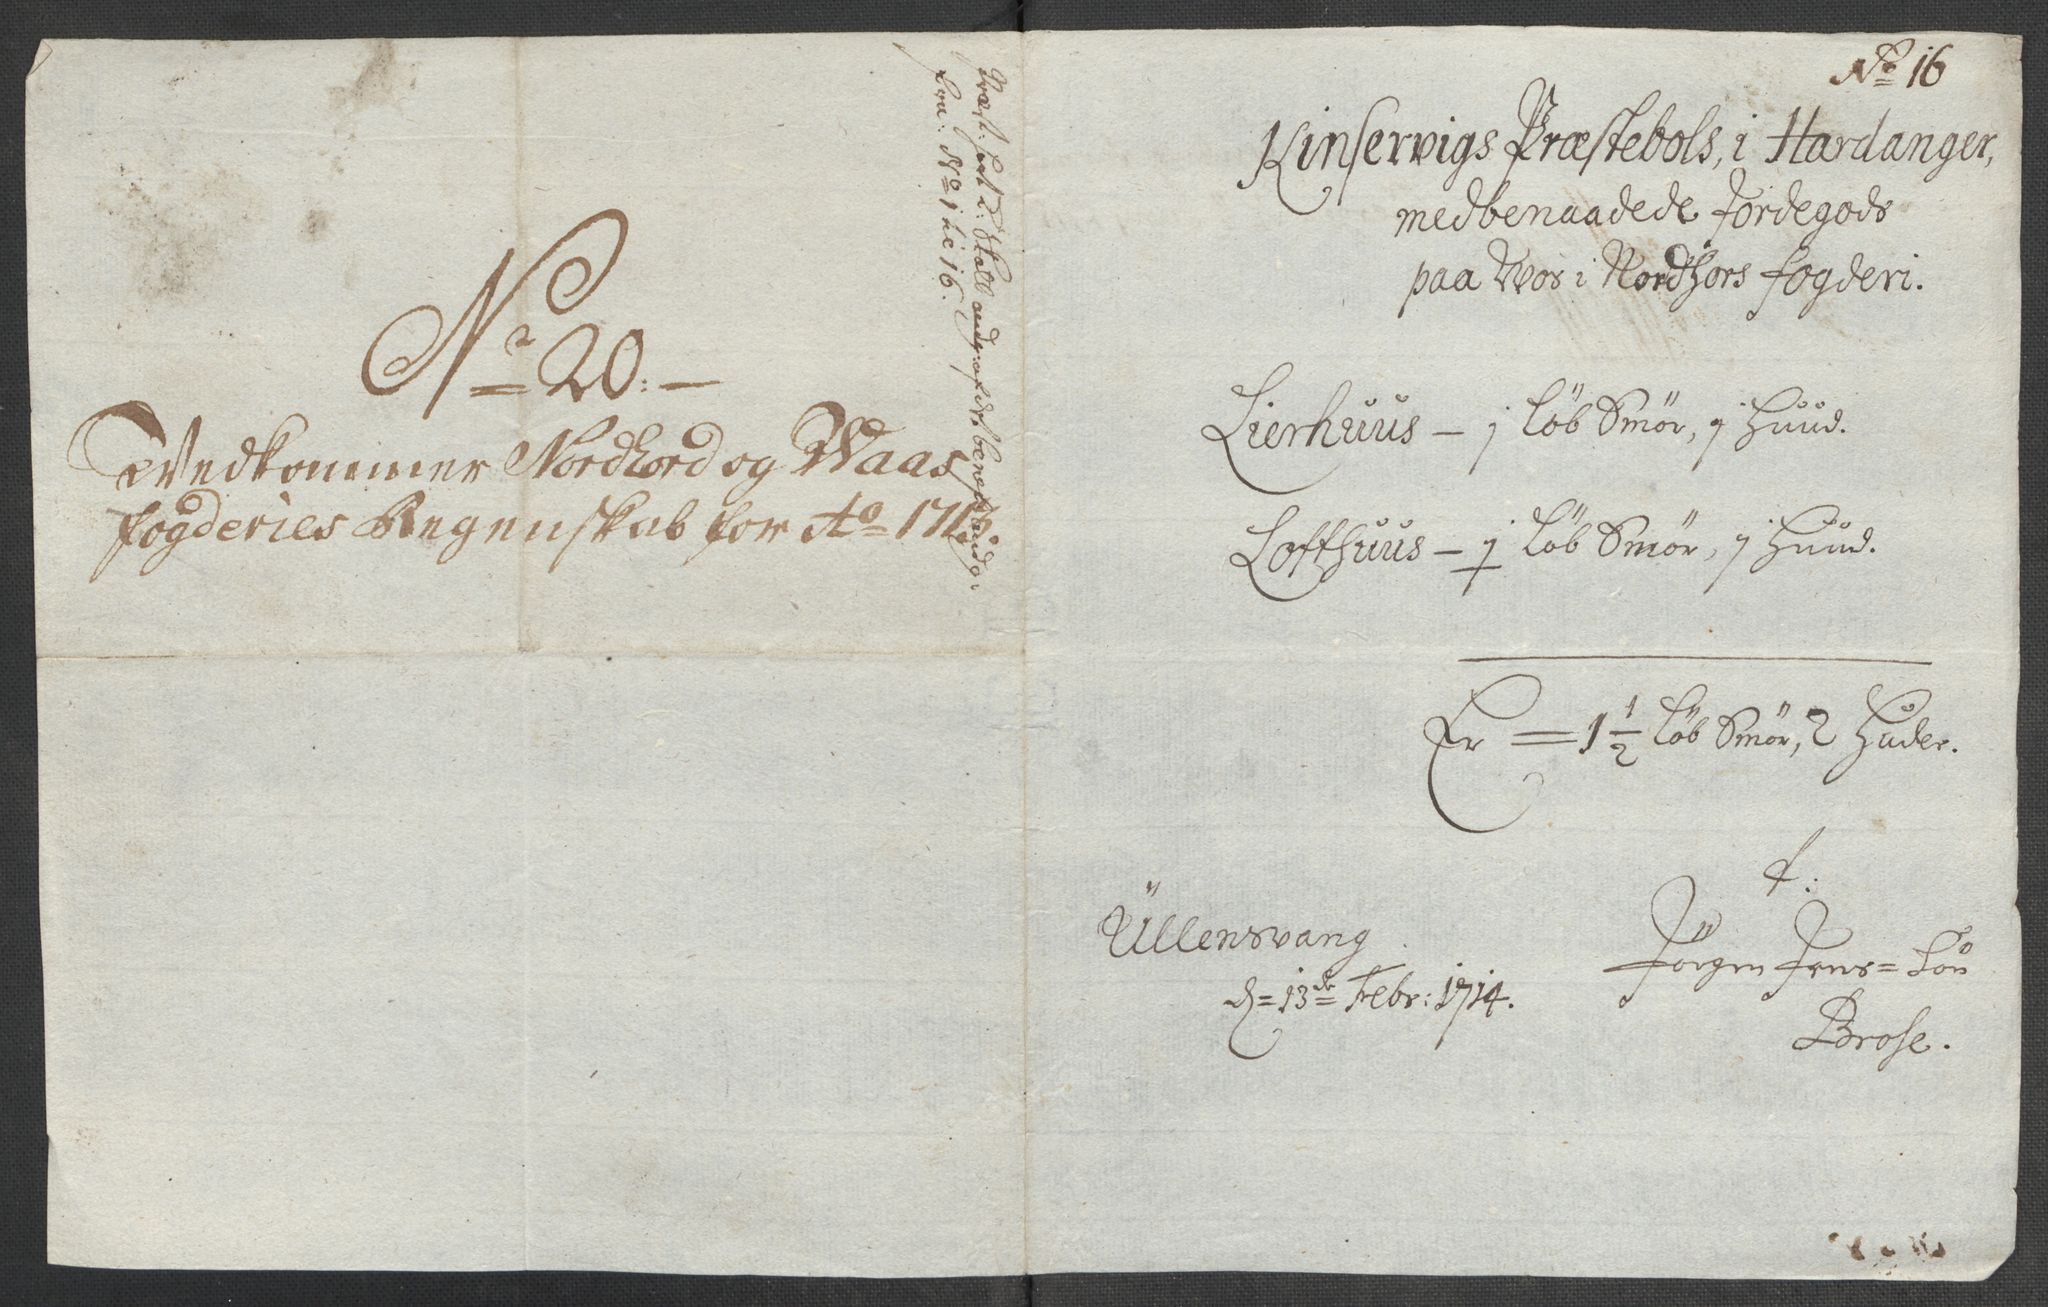 No 20:
Vedkommer Nordhord og Waas
fogderies Regenskab for Ao 1713
No 1 til 16.
No 16
Kinservigs Præstebols, i Hardanger,
medbenaadede Jordegods
paa Wos i Nordhors fogderi.
Lierhuus — j Löb Smör, j Huud.
Lofthuus — ɉ Löb Smör, j Huud.
Er = 1 1/2 Löb Smör, 2 Huder.
Üllensvang
d = 13de Febr: 1714.
Jörgen Jens=Sön
Brose.